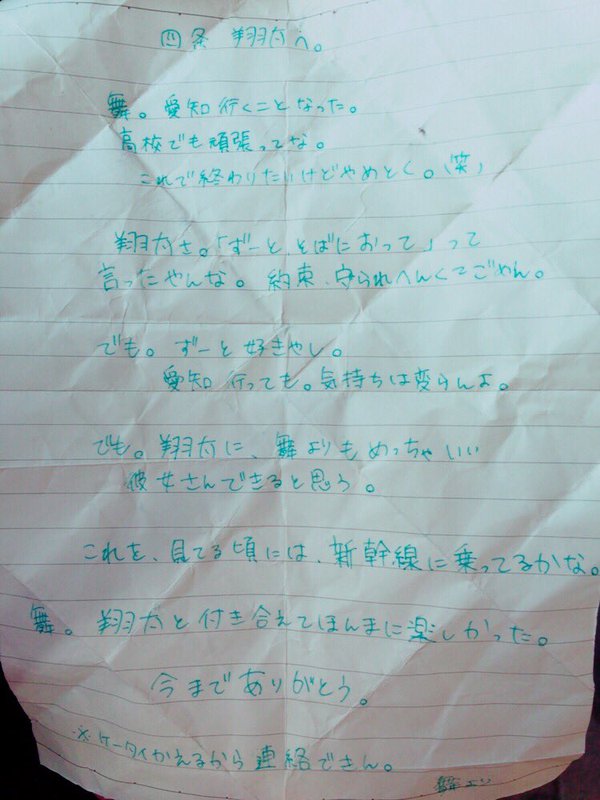 四条 翔太へ。
舞。愛知行くことなった。
高校でも頑張ってな。
これで終わりたいけどやめとく。(笑)
翔太さ。「ずーとそばにおって」って
言ったやんな。約束、守られへんくてごめん。
でも。ずーと好きやし。
愛知行っても。気持ちは変らんよ。
でも。翔太に、舞よりもめっちゃいい
彼女さんできると思う。
これを、見てる頃には、新幹線に乗ってるかな。
舞。翔太と付き合えてほんまに楽しかった。
今までありがとう。
※ケータイかえるから連絡できん。
舞より